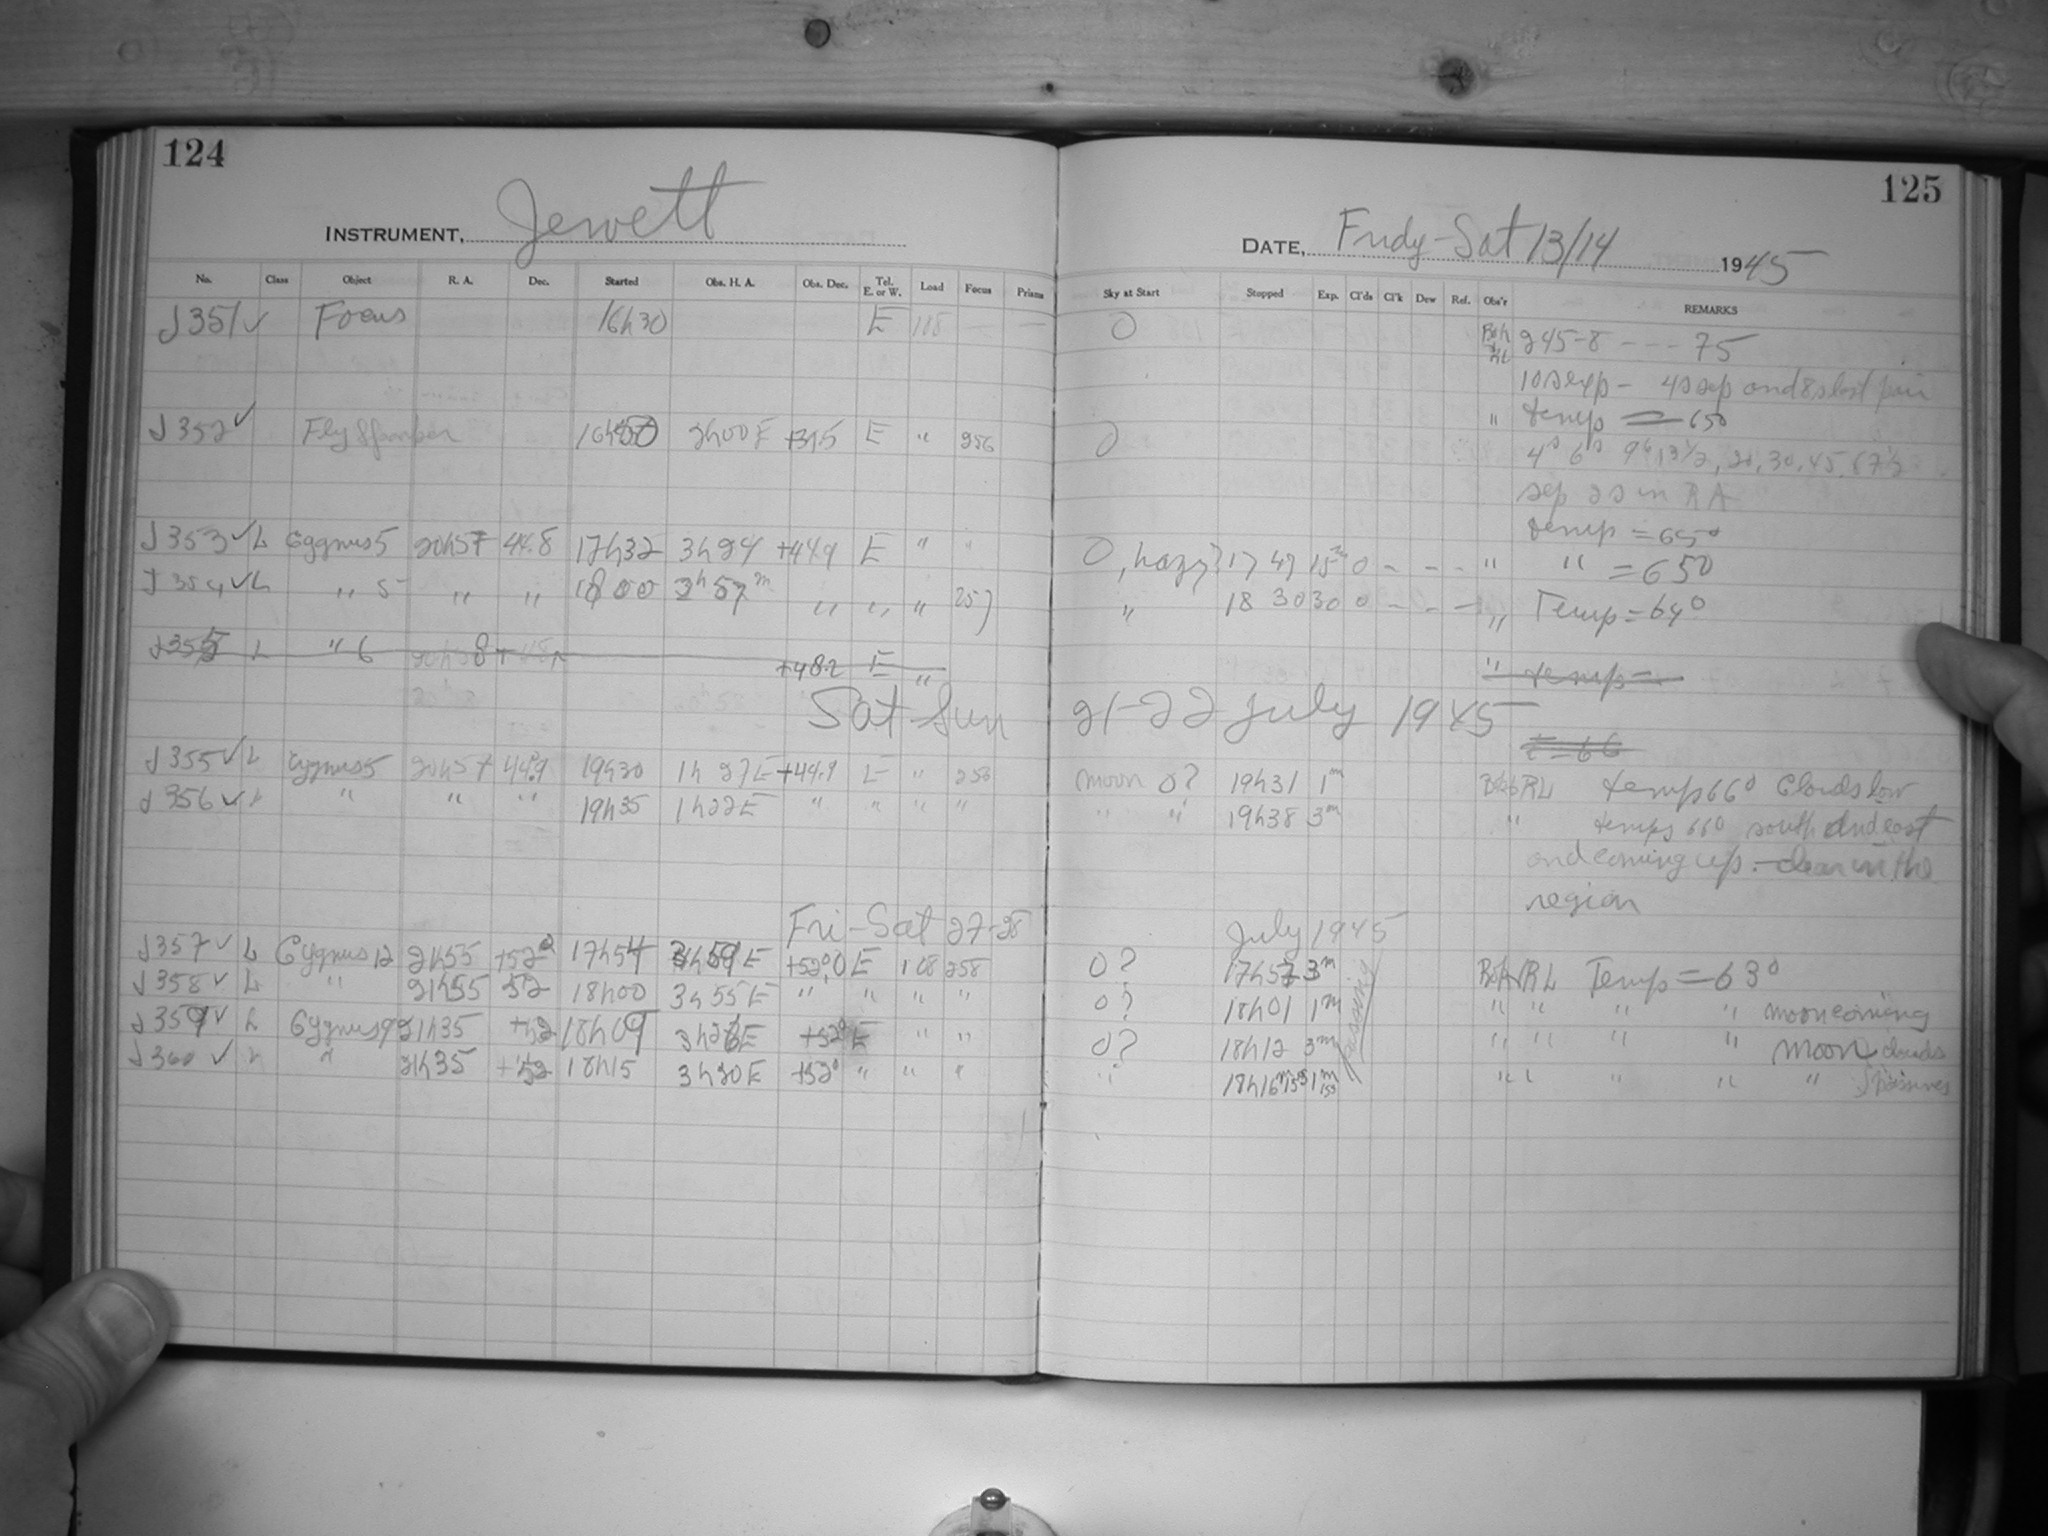 124
INSTRUMENT, Jewett
No. Class Object R. A. Dec. Started Obs. H. A. Obs. Dec. Tel. E. or W. Load Focus Prisms
J351 ✓ Focus 16h30 E 108 — —
J352 ✓ 16h50 2h00E +315 E " 256
J353 ✓ L Cygnus 5 20h57 44.8 17h32 3h24 +449 E " "
J354 ✓ L " 5 " " 1800 3h 57m " " " 257
J355 L " 6 +48.2 E "
Sat-Sun
J355 ✓ L Cygnus 5 20h57 44.9 19h30 1h27E +44.9 E " 258
J356 ✓ L " " " 19h35 1h22E " " " "
Fri-Sat 27-28
J357 ✓ L Cygnus 12 21h55 +52° 17h54 3h59E +52°.0 E 108 258
J358 ✓ L " 21h55 52 18h00 3h55E " " " "
J359 ✓ L Cygnus 21h35 +52 18h09 E +52° E " "
J360 ✓ " " 21h35 +52 18h15 3h20E +52° " " "
125
DATE, Fridy-Sat 13/14 1945
Sky at Start Stopped Exp. Cl'ds Cl'k Dew Ref. Obs'r REMARKS
0 245-8 --- 75
10s exp - 4s sep and 8s last pair
" temp = 65°
0 4s 6s 9s 13½, 20, 30, 45, 67½
sep 2s in RA
temp = 65°
0, hazy? 17 47 15m 0 - - - " " = 65°
" 18 30 30 0 - - - " Temp = 64°
" temp =
21-22 July 1945
t = 66
moon 0? 19h31 1m RL temp 66° Clouds low
" " 19h38 3m " temps 66° south and east
and coming up. clear in the
region
July 1945
0? 17h57 3m RL Temp = 63°
0? 18h01 1m " " " " moon coming
0? 18h12 3m " " " " moon clouds
" 18h16m15s 1m 15s " " " " "
passing